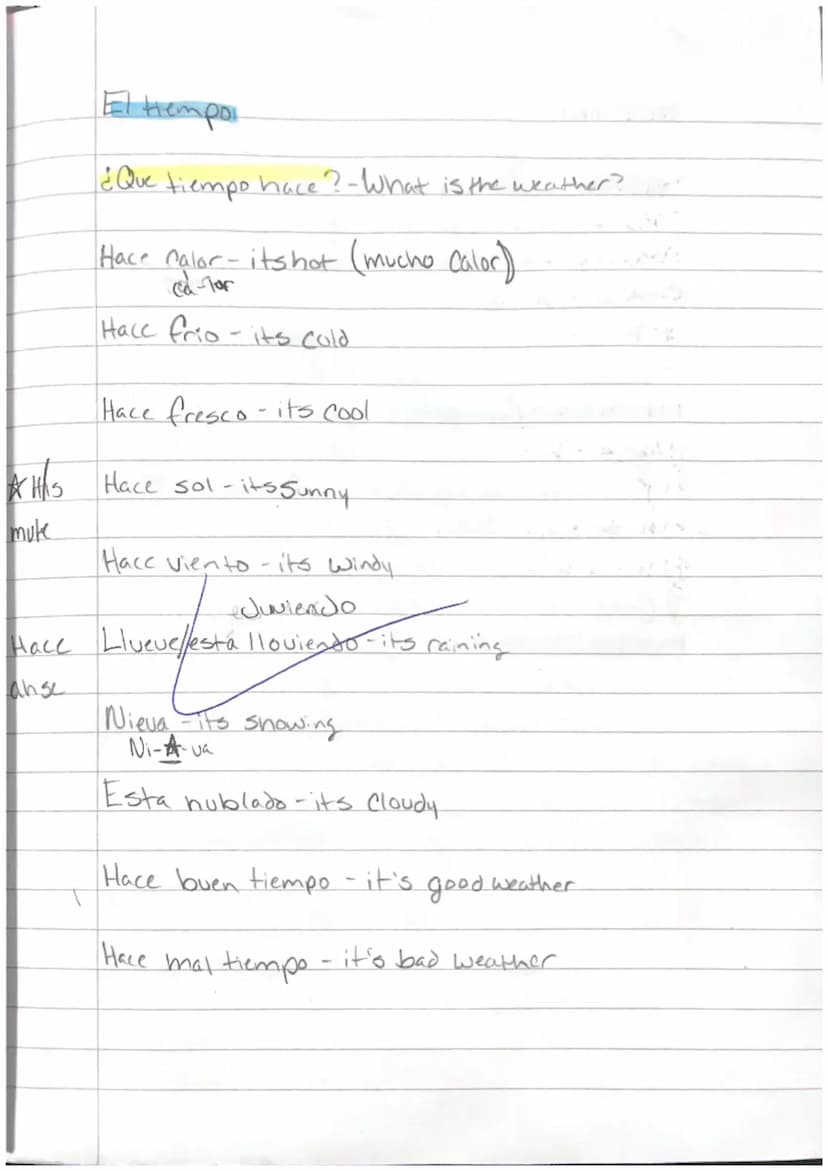 El tiempo
¿Que tiempo hace? - What is the weather?
Hace calor - its hot (mucho calor)
ca-lor
Hace frio - its cold
Hace fresco - its cool
☆ H's
mute
Hace sol - its sunny
Hace viento - its windy
Hace
ahse
Llueve/está lloviendo - its raining
Nieva - its snowing
Ni-A-va
Esta nublado - its cloudy
Hace buen tiempo - it's good weather
Hace mal tiempo - it's bad weather